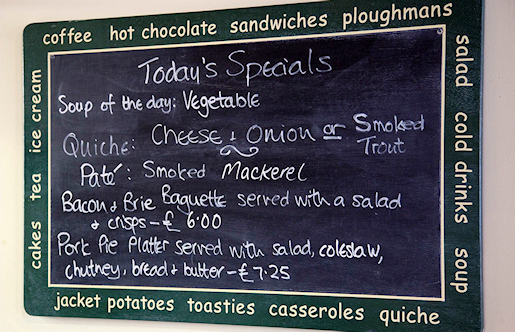 coffee hot chocolate sandwiches ploughmans
salad cold drinks soup
cakes tea ice cream
Today's Specials
Soup of the day: Vegetable
Quiche: Cheese & Onion or Smoked
Trout
Paté: Smoked Mackerel
Bacon & Brie Baguette served with a salad
& crisps - £ 6.00
Pork Pie Platter served with salad, coleslaw,
chutney, bread & butter - £7.25
jacket potatoes toasties casseroles quiche